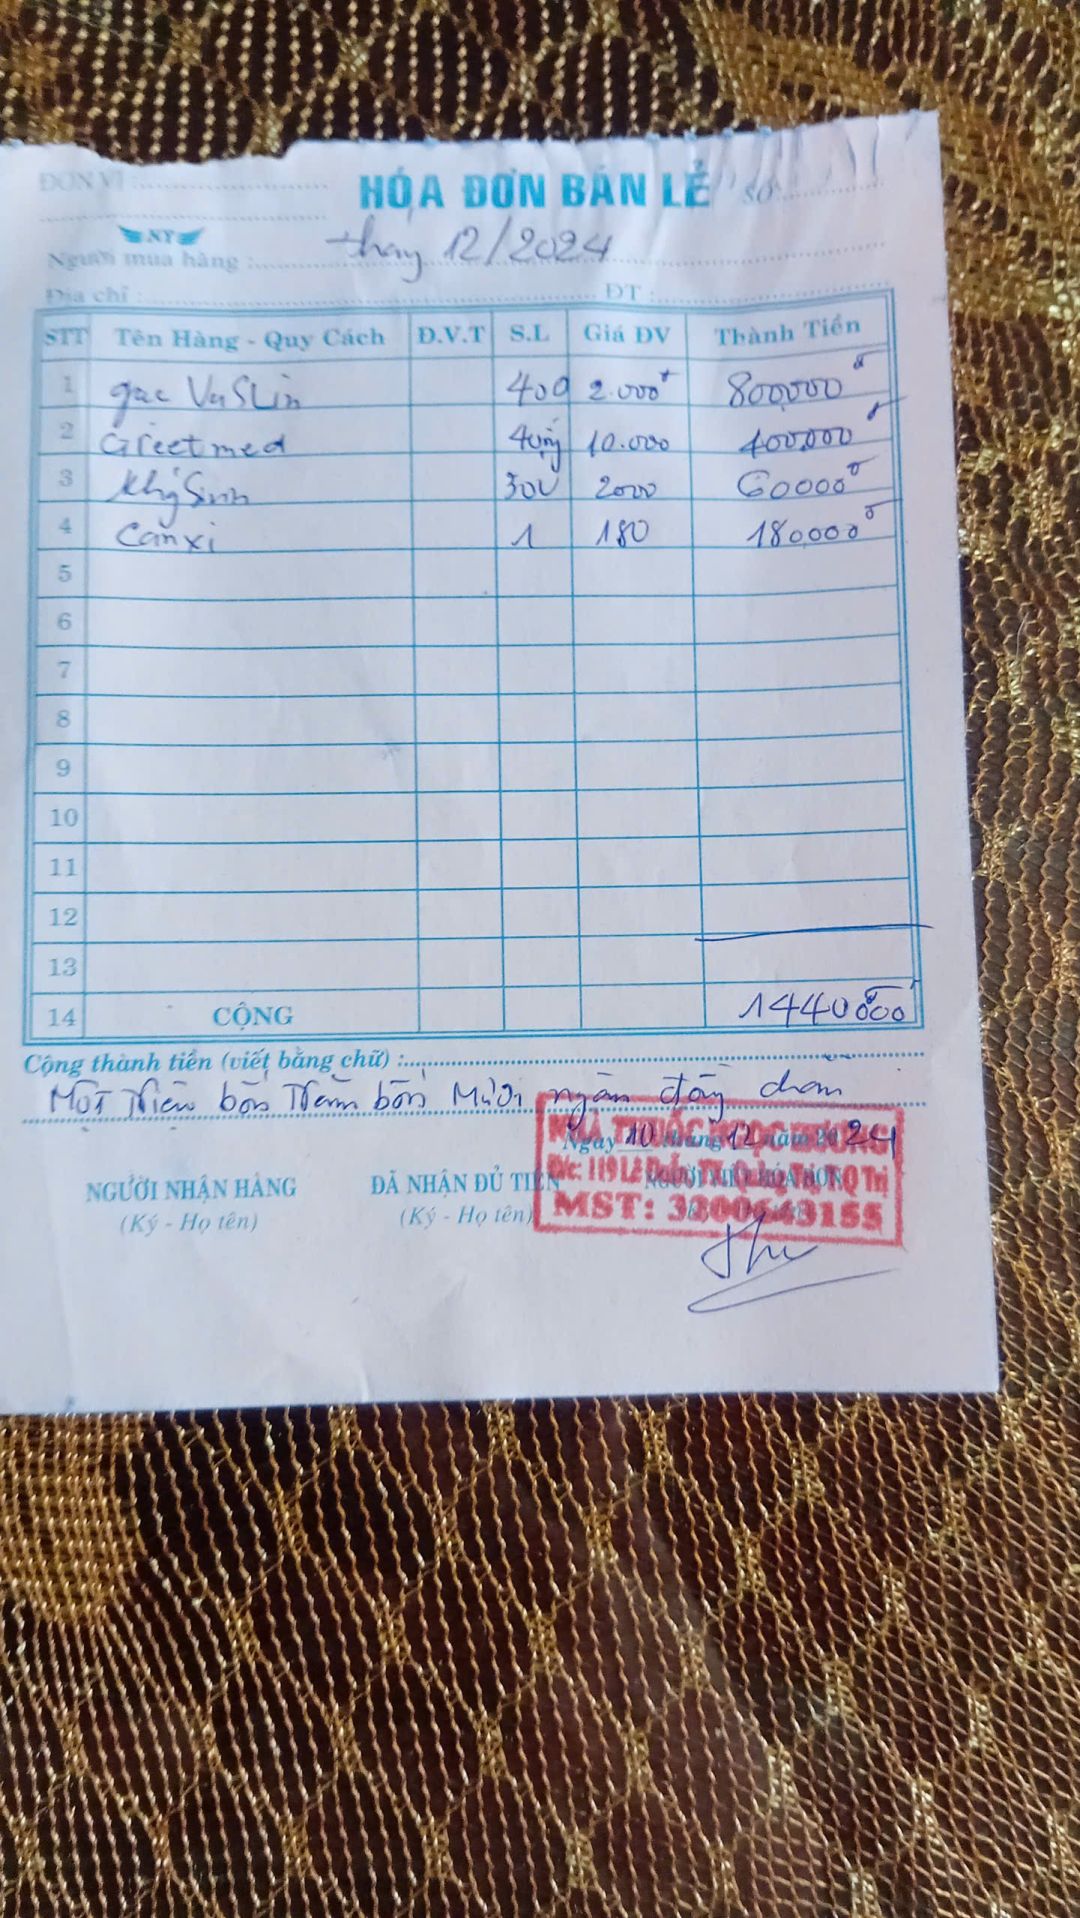 ĐƠN VỊ : HÓA ĐƠN BÁN LẺ SỐ
NT thay 12/2024
Người mua hàng :
Địa chỉ : ĐT :
STT Tên Hàng - Quy Cách Đ.V.T S.L Giá ĐV Thành Tiền
1 gạc VaSlin 400 2.000đ 800,000đ
2 Greetmed 40 10.000 400,000đ
3 Khg Sinh 30V 2000 60000đ
4 Canxi 1 180 180,000đ
5
6
7
8
9
10
11
12
13
14 CỘNG 1440000
Cộng thành tiền (viết bằng chữ) :
Một triệu bốn trăm bốn Mươi ngàn đồng chan
NHÀ THUỐC
Ngày 10 tháng 12 năm 2024
NGƯỜI NHẬN HÀNG ĐÃ NHẬN ĐỦ TIỀN NGƯỜI VIẾT HÓA ĐƠN
Đ/c: 119 Lê Duẩn Q Trị
(Ký - Họ tên) (Ký - Họ tên)
MST: 3200643155